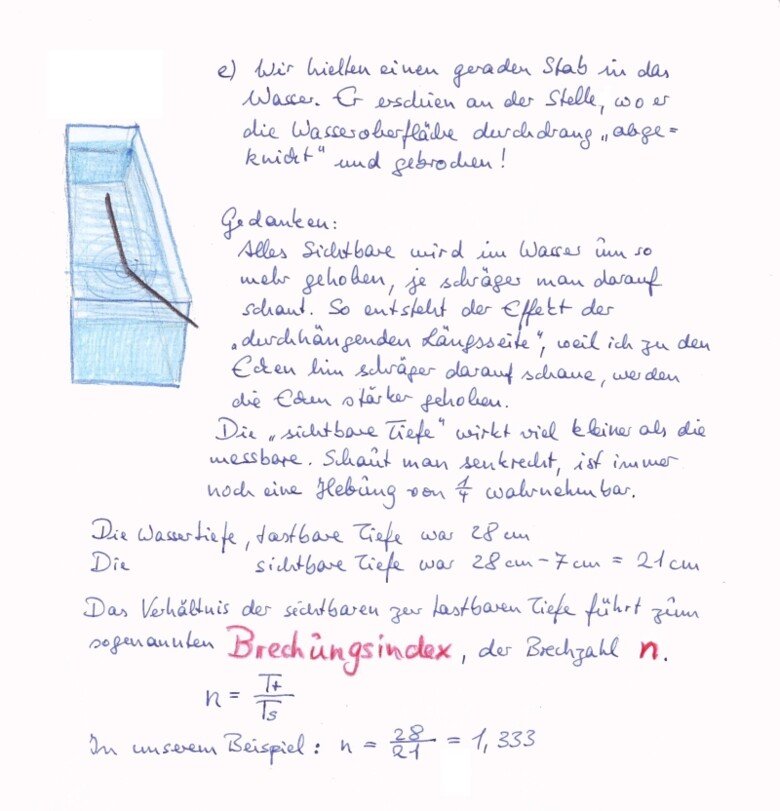 e) Wir hielten einen geraden Stab in das
Wasser. Er erschien an der Stelle, wo er
die Wasseroberfläche durchdrang „abge=
knickt" und gebrochen!
Gedanken:
Alles Sichtbare wird im Wasser um so
mehr gehoben, je schräger man darauf
schaut. So entsteht der Effekt der
„durchhängenden Längsseite", weil ich zu den
Ecken hin schräger darauf schaue, werden
die Ecken stärker gehoben.
Die „sichtbare Tiefe" wirkt viel kleiner als die
messbare. Schaut man senkrecht, ist immer
noch eine Hebung von 1/4 wahrnehmbar.
Die Wassertiefe, tastbare Tiefe war 28 cm
Die sichtbare Tiefe war 28 cm - 7 cm = 21 cm
Das Verhältnis der sichtbaren zur tastbaren Tiefe führt zum
sogenannten Brechungsindex, der Brechzahl n.
n = Tt/Ts
In unserem Beispiel: n = 28/21 = 1,333